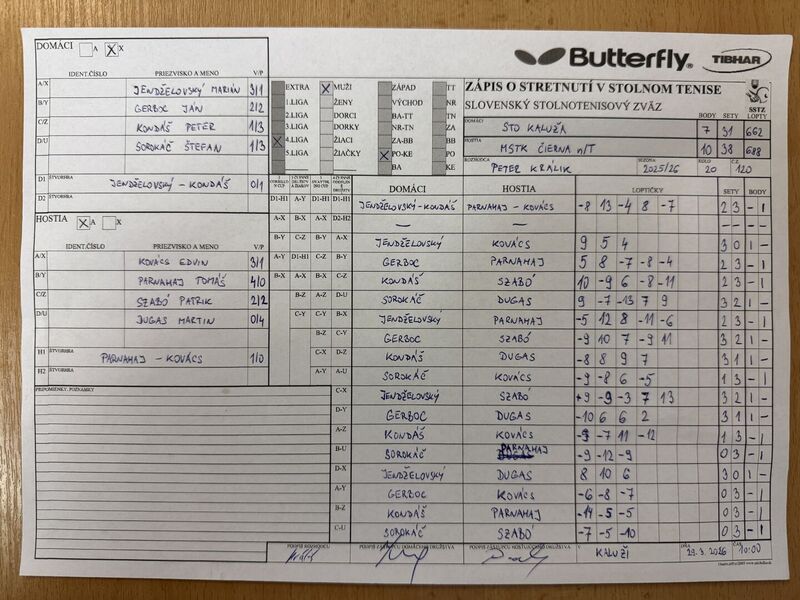 DOMÁCI A X
IDENT.ČÍSLO PRIEZVISKO A MENO V/P
A/X JENDŽELOVSKÝ MARIÁN 3/1
B/Y GERBOC JÁN 2/2
C/Z KONDÁŠ PETER 1/3
D/U SOROKÁČ ŠTEFAN 1/3
D1 ŠTVORHRA JENDŽELOVSKÝ - KONDÁŠ 0/1
D2 ŠTVORHRA
HOSTIA A X
IDENT.ČÍSLO PRIEZVISKO A MENO V/P
A/X KOVÁCS EDVIN 3/1
B/Y PARNAHAJ TOMÁŠ 4/0
C/Z SZABÓ PATRIK 2/2
D/U DUGAS MARTIN 0/4
H1 ŠTVORHRA PARNAHAJ - KOVÁCS 1/0
H2 ŠTVORHRA
PRIPOMIENKY, POZNÁMKY
Butterfly TIBHAR
EXTRA X MUŽI ZÁPAD TT
1.LIGA ŽENY VÝCHOD NR
2.LIGA DORCI BA-TT TN
3.LIGA DORKY NR-TN ZA
X 4.LIGA ŽIACI ZA-BB BB
5.LIGA ŽIAČKY X PO-KE PO
BA KE
ZÁPIS O STRETNUTÍ V STOLNOM TENISE
SLOVENSKÝ STOLNOTENISOVÝ ZVÄZ
SSTZ
BODY SETY LOPTY
DOMÁCI STO KALUŽA 7 31 662
HOSTIA MSTK ČIERNA n/T 10 38 688
ROZHODCA PETER KRÁLIK SEZÓNA 2025/26 KOLO 20 Č.Z. 120
DOMÁCI HOSTIA LOPTIČKY SETY BODY
D1-H1 A-Y D1-H1 D1-H1 JENDŽELOVSKÝ-KONDÁŠ PARNAHAJ - KOVÁCS -8 13 -4 8 -7 2 3 - 1
A-X B-X A-X D2-H2 — — - - - -
B-Y C-Z B-Y A-X JENDŽELOVSKÝ KOVÁCS 9 5 4 3 0 1 -
A-Y D1-H1 C-Z B-Y GERBOC PARNAHAJ 5 8 -7 -8 -4 2 3 - 1
B-X A-X D-U C-Z KONDÁŠ SZABÓ 10 -9 6 -8 -11 2 3 - 1
B-Z A-Z D-U SOROKÁČ DUGAS 9 -7 -13 7 9 3 2 1 -
C-Y B-X A-Y JENDŽELOVSKÝ PARNAHAJ -5 12 8 -11 -6 2 3 - 1
B-Z GERBOC SZABÓ -9 10 7 -9 11 3 2 1 -
C-X D-Z KONDÁŠ DUGAS -8 8 9 7 3 1 1 -
A-Y A-U SOROKÁČ KOVÁCS -9 -8 6 -5 1 3 - 1
C-X JENDŽELOVSKÝ SZABÓ +9 -9 -3 7 13 3 2 1 -
D-Y GERBOC DUGAS -10 6 6 2 3 1 1 -
A-Z KONDÁŠ KOVÁCS -9 -7 11 -12 1 3 - 1
B-U SOROKÁČ PARNAHAJ -9 -12 -9 0 3 - 1
D-X JENDŽELOVSKÝ DUGAS 8 10 6 3 0 1 -
A-Y GERBOC KOVÁCS -6 -8 -7 0 3 - 1
B-Z KONDÁŠ PARNAHAJ -14 -5 -5 0 3 - 1
C-U SOROKÁČ SZABÓ -7 -5 -10 0 3 - 1
PODPIS ROZHODCU PODPIS ZÁSTUPCU DOMÁCEHO DRUŽSTVA PODPIS ZÁSTUPCU HOSŤUJÚCEHO DRUŽSTVA V KALUŽI DŇA 29.3.2026 ČAS 10:00